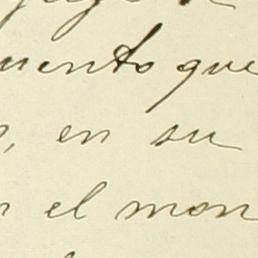 uento que
, en su
n el mon